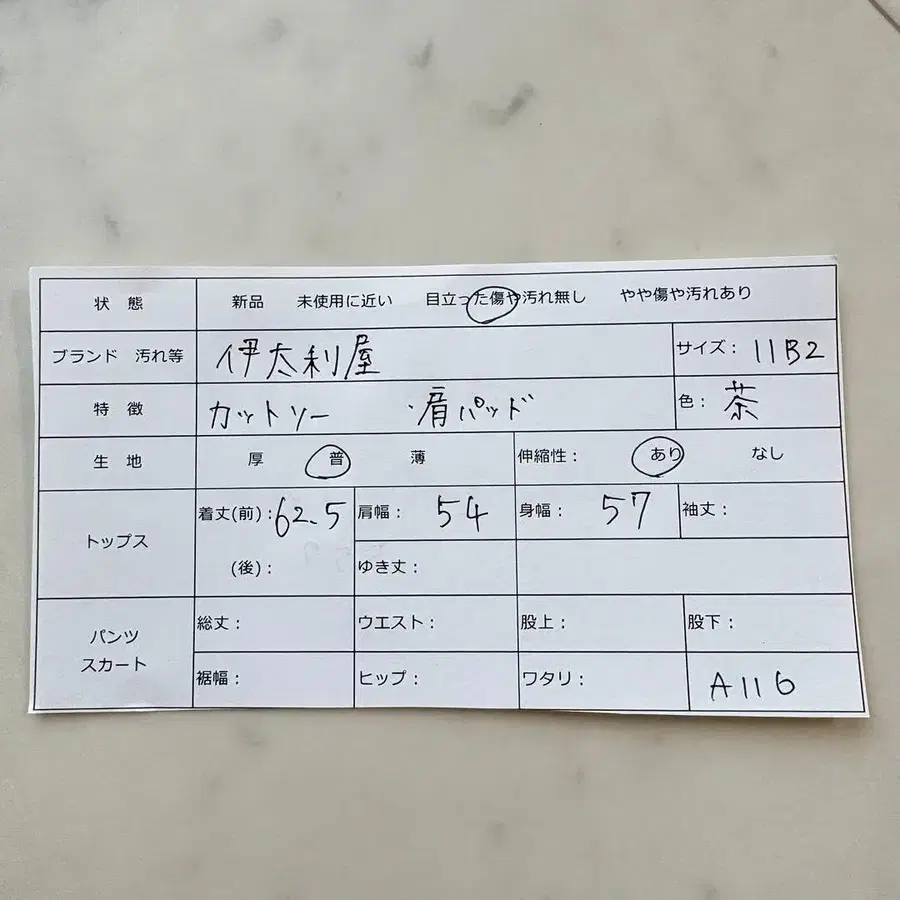 状 態 新品 未使用に近い 目立った傷や汚れ無し やや傷や汚れあり
ブランド 汚れ等 伊太利屋 サイズ： 11B2
特 徴 カットソー ・肩パッド 色： 茶
生 地 厚 普 薄 伸縮性： あり なし
トップス 着丈(前)：62.5 肩幅： 54 身幅： 57 袖丈：
(後)： ゆき丈：
パンツ スカート 総丈： ウエスト： 股上： 股下：
裾幅： ヒップ： ワタリ： A116